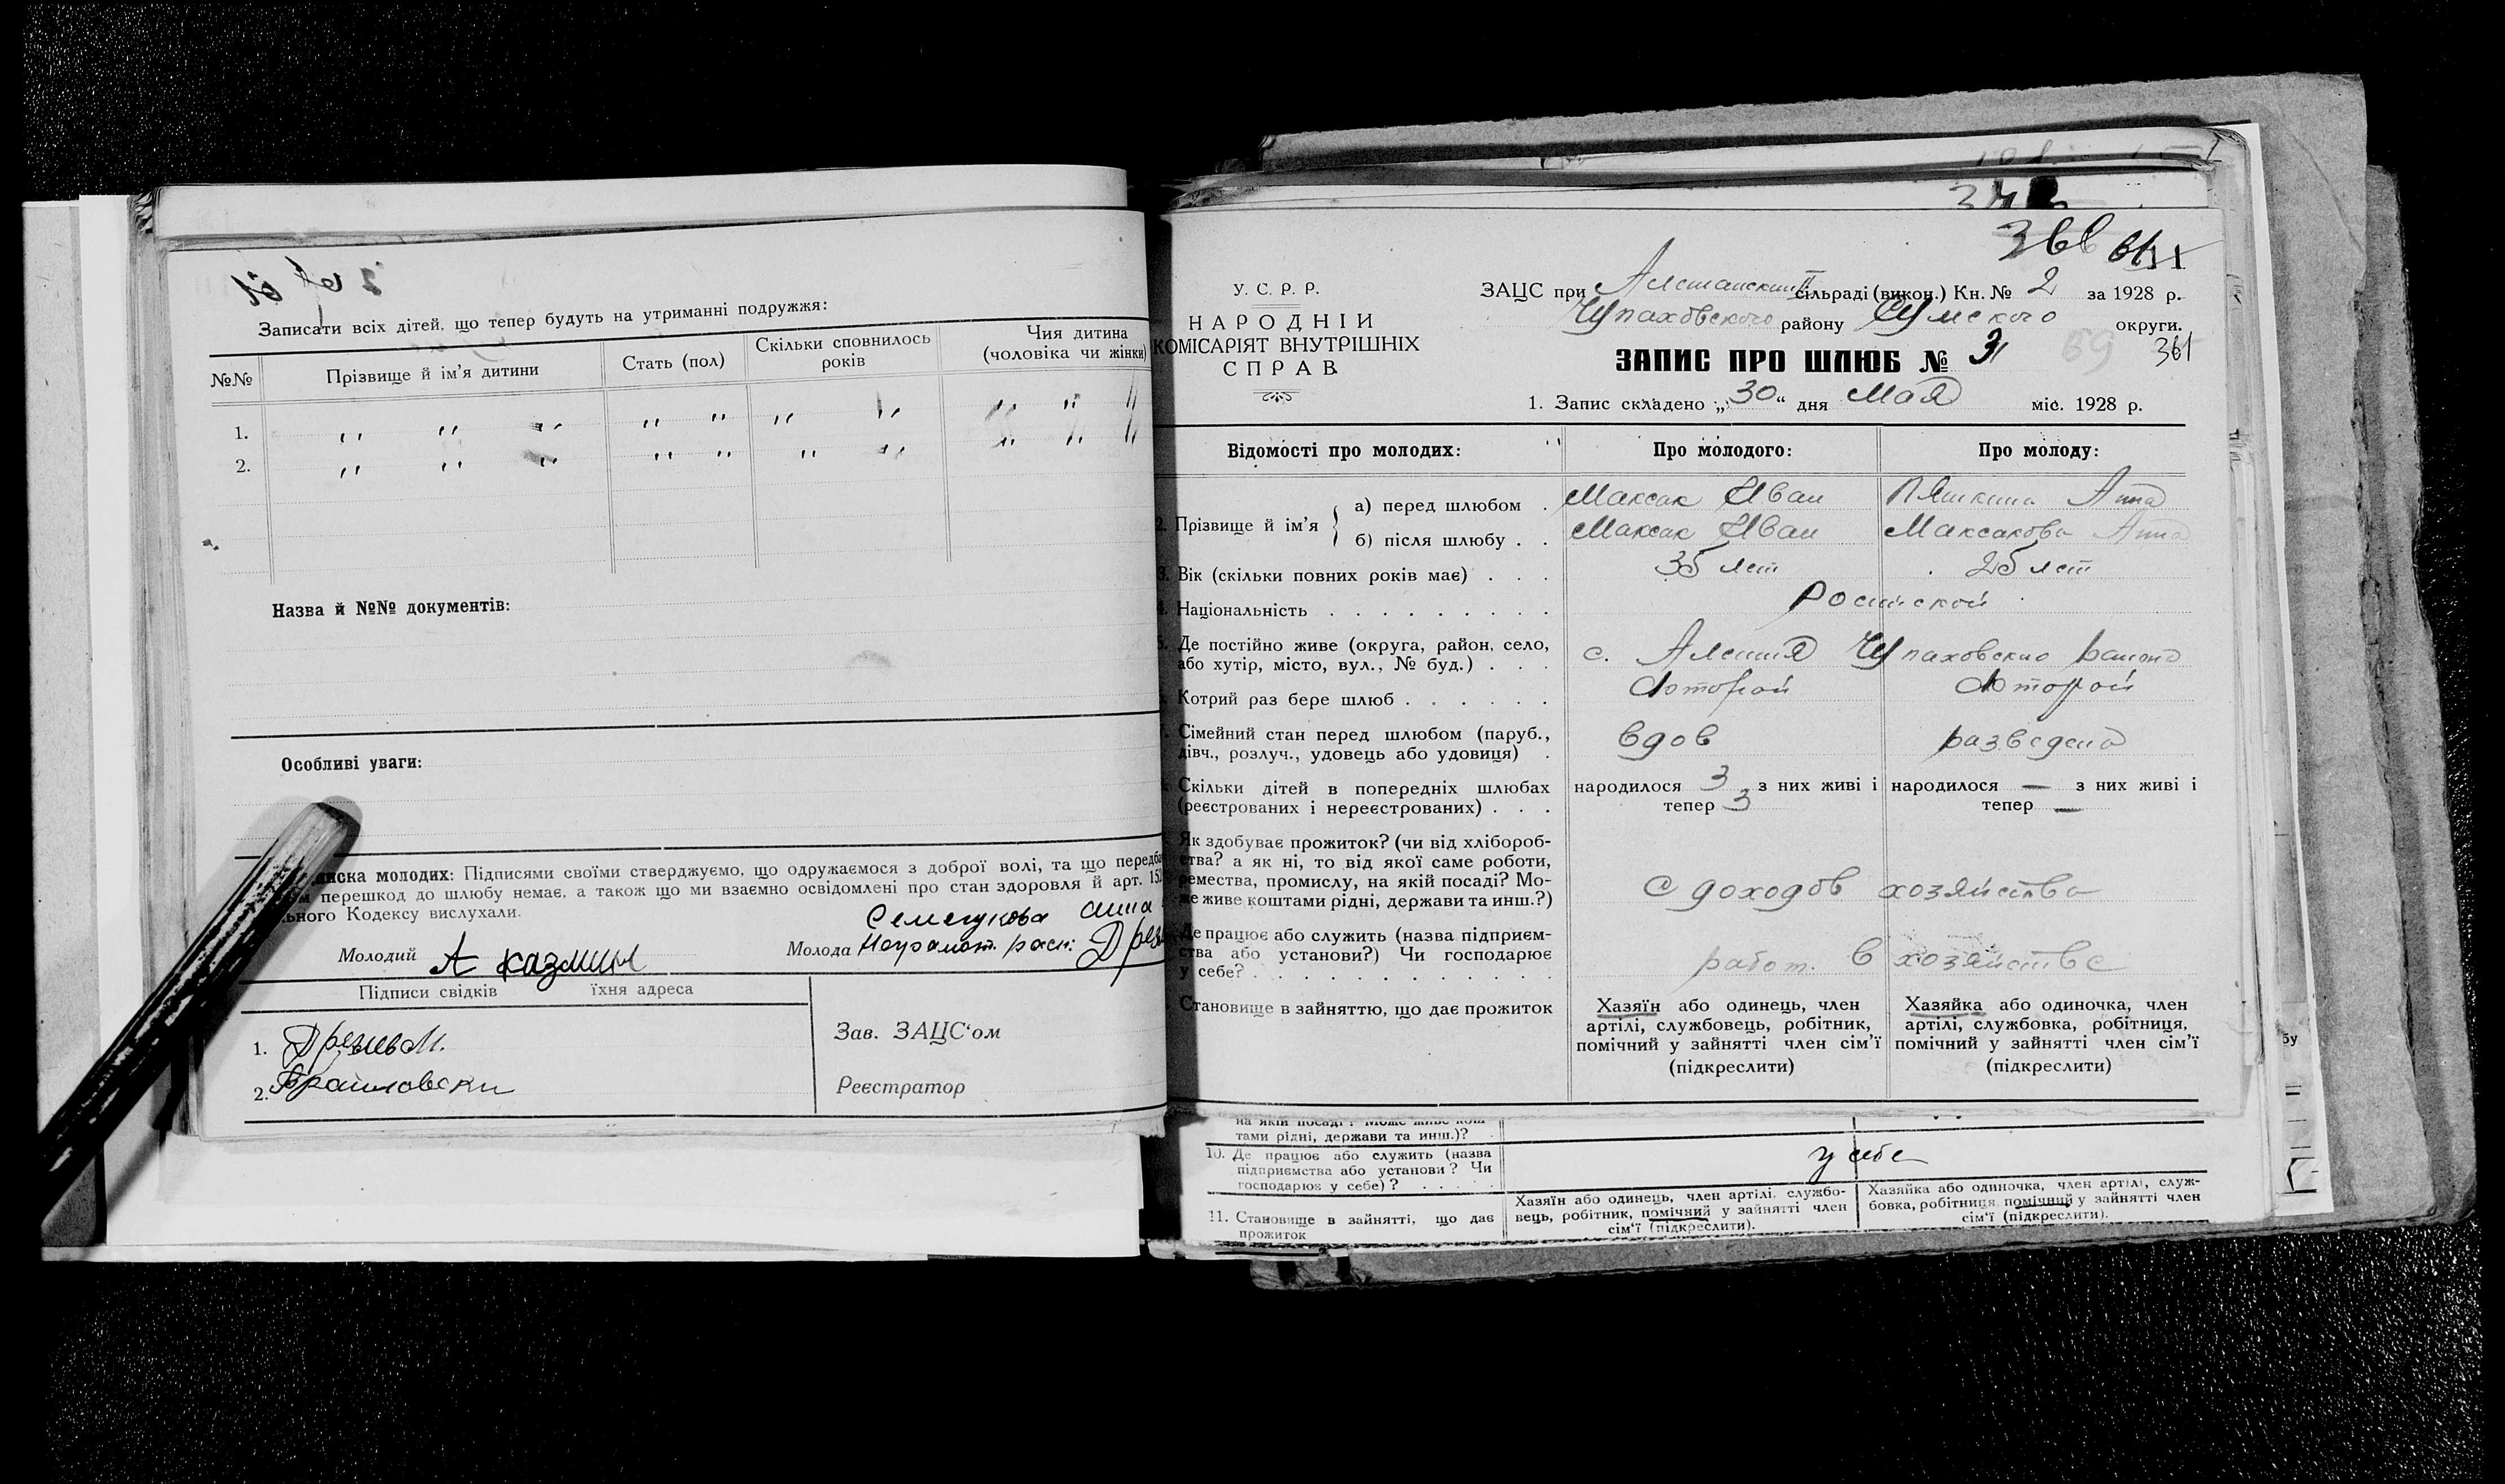 Записати всіх дітей, що тепер будуть на утриманні подружжя:
№№ Прізвище й ім'я дитини Стать (пол) Скільки сповнилось років Чия дитина (чоловіка чи жінки)
1. " " " " " " " " " "
2. " " " " " " " " " "
Назва й №№ документів:
Особливі уваги:
иска молодих: Підписями своїми стверджуємо, що одружаємося з доброї волі, та що передба
перешкод до шлюбу немає, а також що ми взаємно освідомлені про стан здоровля й арт. 15
ьного Кодексу вислухали.
Молодий А казмин
Молода Неграмот. расп:
Анна
Підписи свідків їхня адреса
1.
2.
Зав. ЗАЦС'ом
Реєстратор
366
361
У. С. Р. Р.
НАРОДНІЙ
КОМІСАРІЯТ ВНУТРІШНІХ
СПРАВ
ЗАЦС при сільраді (викон.) Кн. № 2 за 1928 р.
Чупаховского району Сумского округи.
ЗАПИС ПРО ШЛЮБ № 31
69
1. Запис складено „30“ дня Мая міс. 1928 р.
Відомості про молодих: Про молодого: Про молоду:
Прізвище й ім'я
а) перед шлюбом . Максак Иван Анна
б) після шлюбу . . Максак Иван Максакова Анна
Вік (скільки повних років має) . . . 35 лет 25 лет
Національність . . . . . . . . . Росийской
Де постійно живе (округа, район, село,
або хутір, місто, вул., № буд.) . . . с. Алешня Чупаховскио района
Котрий раз бере шлюб . . . . . . второй второй
Сімейний стан перед шлюбом (паруб.,
дівч., розлуч., удовець або удовиця) . вдов разведена
Скільки дітей в попередніх шлюбах
(реєстрованих і нереєстрованих) . . .
народилося 3 з них живі і тепер 3
народилося — з них живі і тепер —
Як здобуває прожиток? (чи від хлібороб-
ства? а як ні, то від якої саме роботи,
ремества, промислу, на якій посаді? Мо-
же живе коштами рідні, держави та инш.?)
с доходов хозяйства
Де працює або служить (назва підприєм-
ства або установи?) Чи господарює
у себе? . . . . . . . . . . . . .
работ. в хозяйстве
Становище в зайняттю, що дає прожиток
Хазяїн або одинець, член
артілі, службовець, робітник,
помічний у зайнятті член сім'ї
(підкреслити)
Хазяйка або одиночка, член
артілі, службовка, робітниця,
помічний у зайнятті член сім'ї
(підкреслити)
тами рідні, держави та инш.)?
10. Де працює або служить (назва
підприємства або установи? Чи
господарює у себе)? . . . . .
у себе
11. Становище в зайнятті, що дає
прожиток
Хазяїн або одинець, член артілі, службо-
вець, робітник, помічний у зайнятті член
сім'ї (підкреслити).
Хазяйка або одиночка, член артілі, служ-
бовка, робітниця, помічний у зайнятті член
сім'ї (підкреслити).